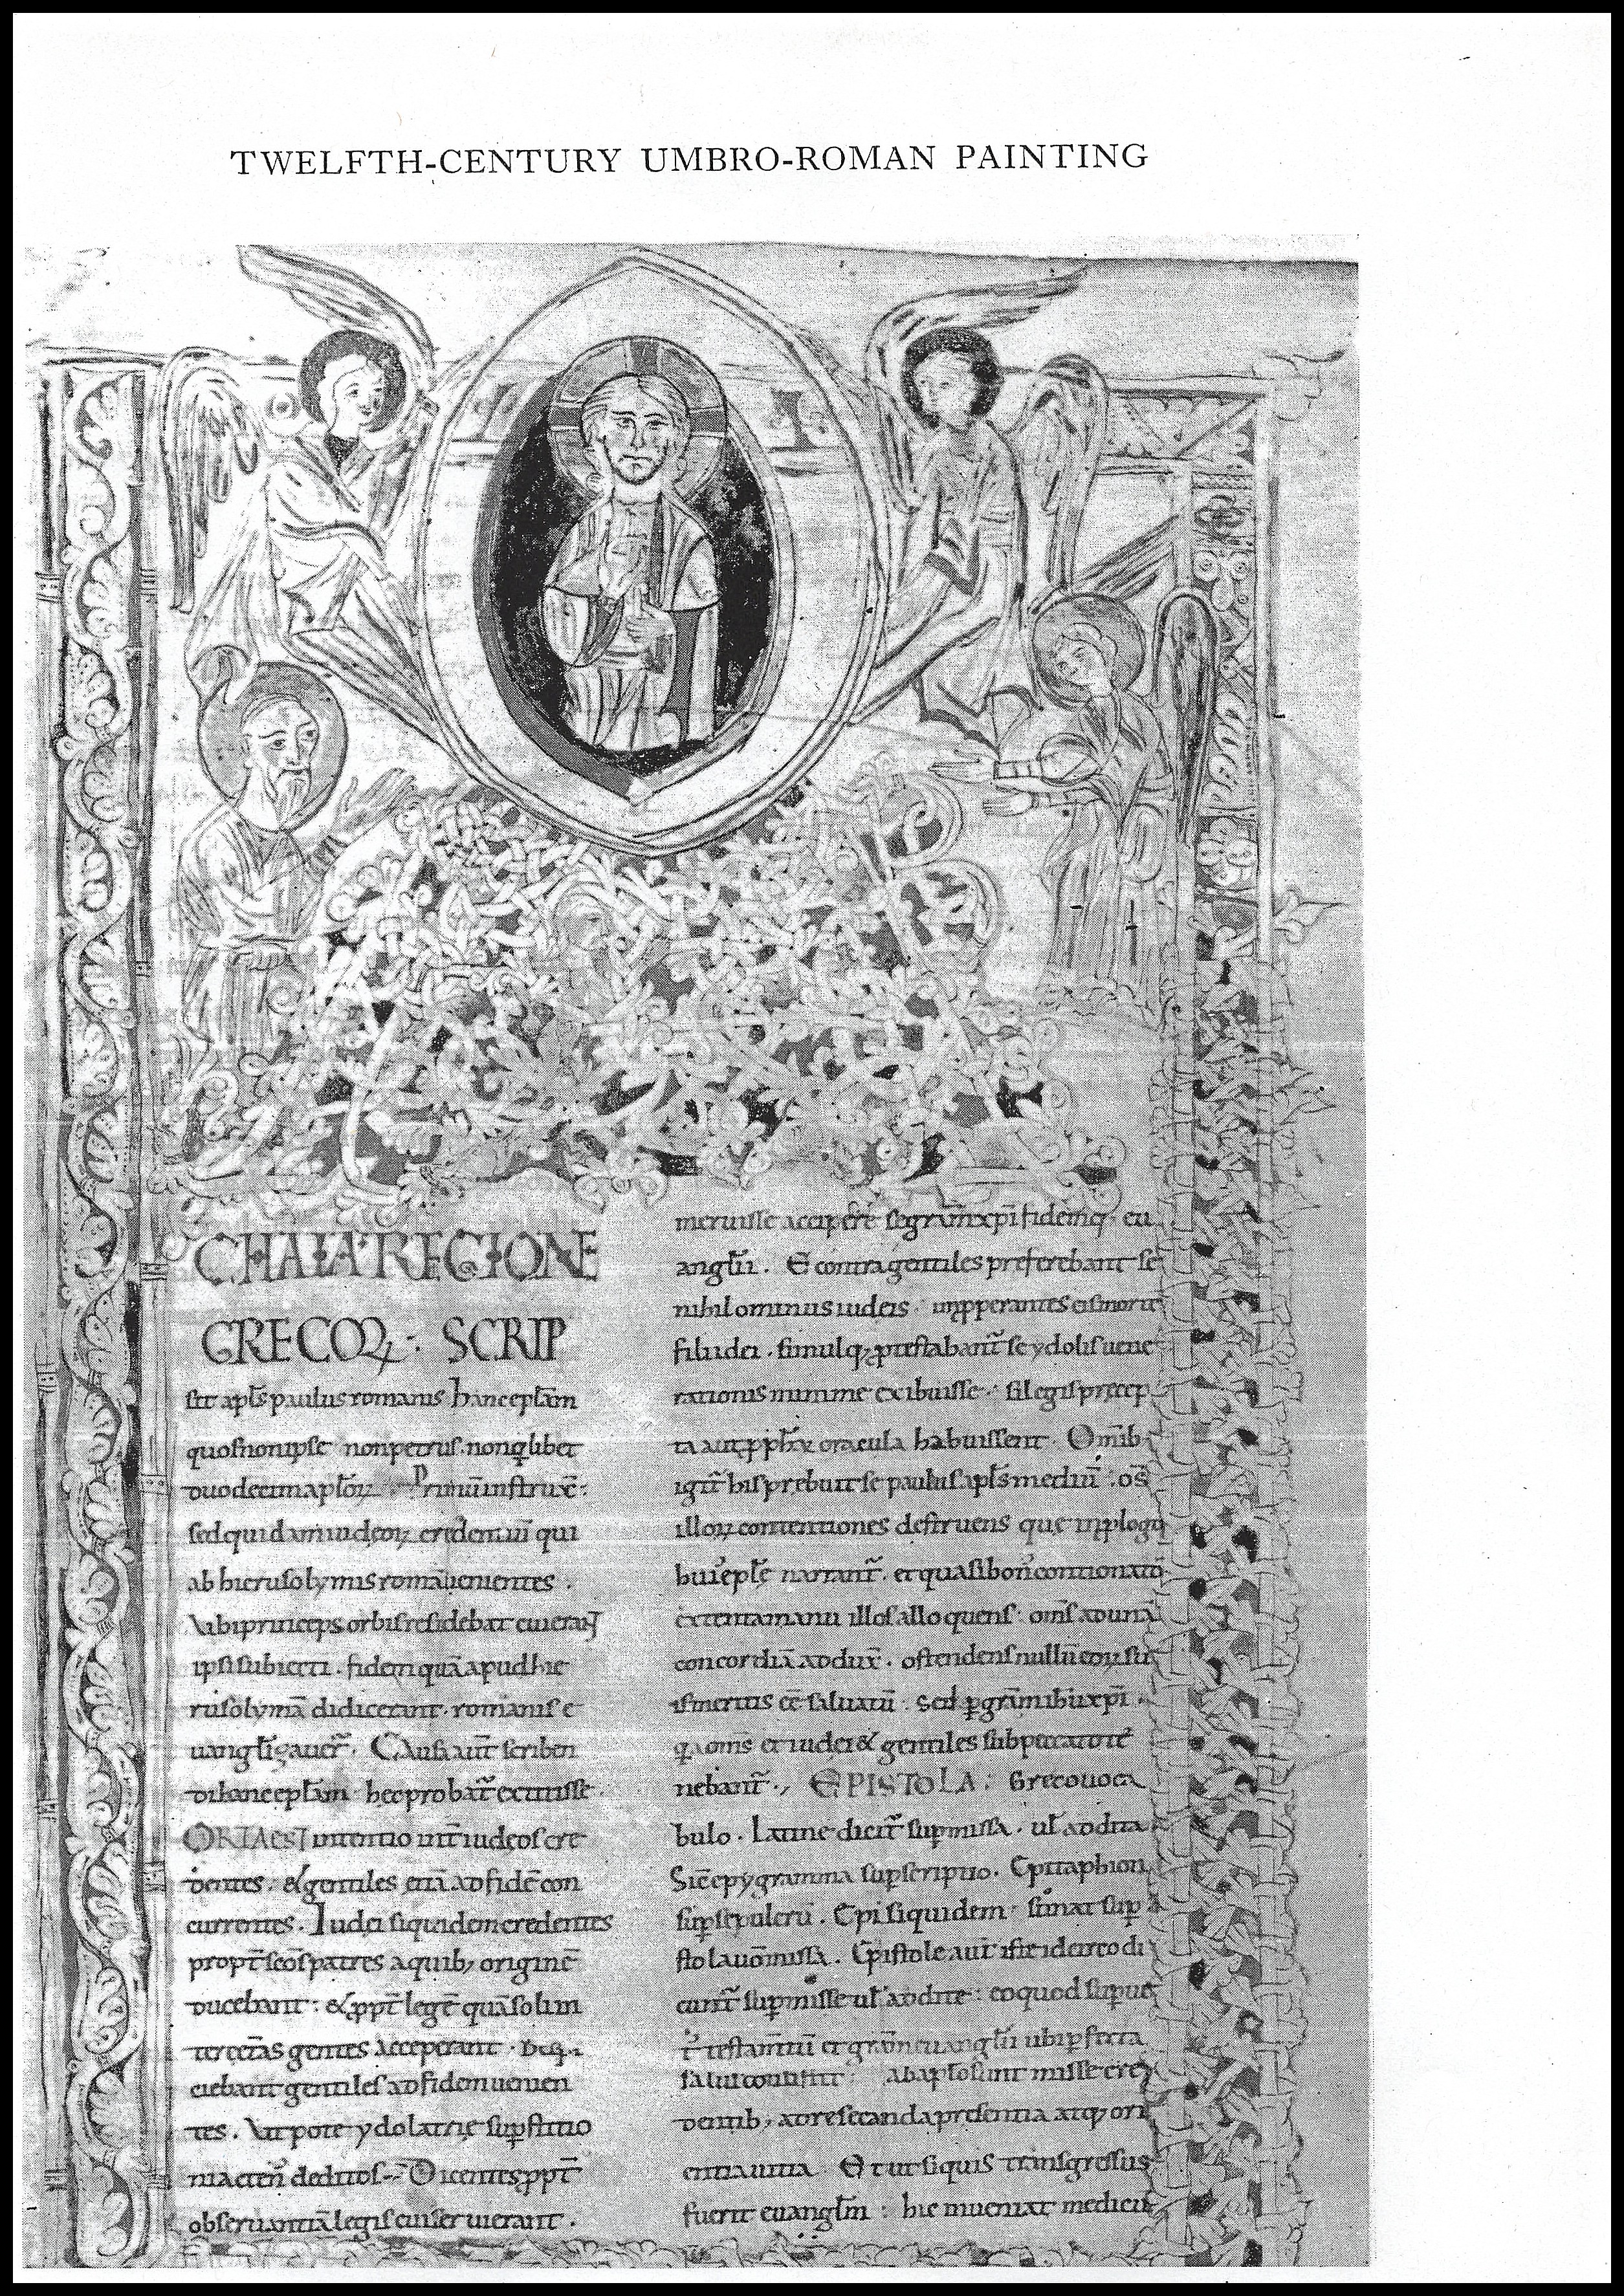 TWELFTH-CENTURY UMBRO-ROMAN PAINTING
CHAIA REGIONE
GRECOꝜ : SCRIP
sit apl̄s paulus romanis hanc epl̄am
quos non ipse non petrus. non q̄libet
duodecim aploꝝ. Primū instruxē:
sed quidam iudeoꝝ credentiū qui
ab hierusolymis romā uenientes.
Vbi princeps orbis residebat cui erant
ipsi subiecti. fidem quā apud hie
rusolymā didicerant. romanis e
uangl̄izauer̄. Causa aut̄ scriben
di hanc epl̄am hec probat̄ extitisse.
ORTA EST intentio int̄ iudeos cre
dentes. & gentiles etiā ad fidē con
currentes. Iudei siquidem credentes
propt̄ sc̄os patres a quib; originē
ducebant: & ꝓpt̄ legē quā solim
ter cet̄as gentes acceperant.
ciebant gentiles ad fidem uenien
tes. Vt pote ydolatrię suꝑstitio
ni acten̄ deditos. Dicentes ꝓpt̄
obseruantiā legis cui seruierant.
meruisse accipere se grām xp̄i fidemq; eu
angl̄ii. E contra gentiles preferebant se
nihilominus iudeis. inꝓperantes eis morte
filii dei. simulq; prestabant̄ se ydolis uene
rationis minime exibuisse. si legis precep
ta aut ꝓph̄ꝝ oracula habuissent. Omib;
igit̄ his prebuit se paulus apl̄s mediū. os̄
illoꝝ contentiones destruens que in ꝓlogis
hui' epl̄ę narrant̄. et quasi bon' contionator
extenta manu illos alloquens: om̄s ad unā
concordiā addux̄. ostendens nullū eoꝝ su
is meritis eē saluatū. Sed ꝑ grām ihu xp̄i.
q̄a om̄s et iudei & gentiles sub peccato te
nebant̄., EPISTOLA. Greco uoca
bulo. Latine dicit̄ supmissa. ul̄ addita
Sic̄ epygramma supscriptio. Epitaphion
sup sepulcrū. Epi siquidem sonat sup
stola uō missa. Epistole aut̄ iste idcirco di
cunt̄ supmisse ul̄ addite: eo quod sup ue
t' testam̄tū et grām euangl̄ii ubi perfecta
salus consistit ab aplo sunt misse cre
dentib; ad resecanda presentia atq; ori
entia uitia. Et ut siquis transgressus
fuerit euangl̄m: hic inueniat medicin